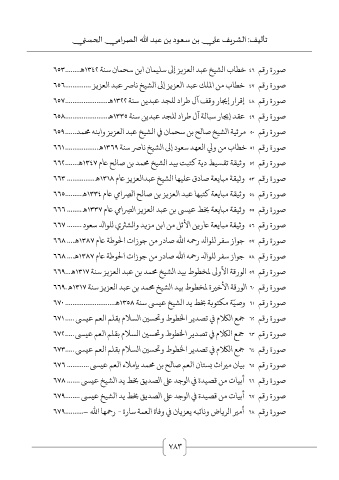 تأليف: الشريف علي بن سعود بن عبد الله الصرامي الحسني
صورة رقم ٤٦ خطاب الشيخ عبد العزيز إلى سليمان ابن سحمان سنة ١٣٤٢هـ........٦٥٣
صورة رقم ٤٧ خطاب من الملك عبد العزيز إلى الشيخ ناصر عبد العزيز.............٦٥٦
صورة رقم ٤٨ إقرار إيجار وقف آل طراد للجد عبدين سنة ١٣٢٢هـ.......................٦٥٧
صورة رقم ٤٩ عقد إيجار سبالة آل طراد للجد عبدين سنة ١٣٣٥هـ.....................٦٥٨
صورة رقم ٥٠ مرثية الشيخ صالح بن سحمان في الشيخ عبد العزيز وابنه محمد......٦٥٩
صورة رقم ٥١ خطاب من ولي العهد سعود إلى الشيخ ناصر سنة ١٣٦٩هـ..................٦٦١
صورة رقم ٥٢ وثيقة تقسيط دية كتبت بيد الشيخ محمد بن صالح عام ١٣٤٧هـ......٦٦٢
صورة رقم ٥٣ وثيقة مبايعة صادق عليها الشيخ عبدالعزيز عام ١٣١٨هـ............... ٦٦٣
صورة رقم ٥٤ وثيقة مبايعة كتبها عبد العزيز بن صالح الصرامي عام ١٣٣٤هـ........٦٦٥
صورة رقم ٥٥ وثيقة مبايعة بخط عيسى بن عبد العزيز الصرامي عام ١٣٣٧هـ........ ٦٦٦
صورة رقم ٥٦ وثيقة مبايعة عارين الأثل من ابن مزيد والمشتري للوالد سعود ....... ٦٦٧
صورة رقم ٥٧ جواز سفر للوالد رحمه الله صادر من جوزات الحوطة عام ١٣٨٧هـ....٦٦٨
صورة رقم ٥٨ جواز سفر للوالد رحمه الله صادر من جوزات الحوطة عام ١٣٨٧هـ....٦٦٨
صورة رقم ٥٩ الورقة الأولى لمخطوط بيد الشيخ محمد بن عبد العزيز سنة ١٣١٧هـ...٦٦٩
صورة رقم ٦٠ الورقة الأخيرة لمخطوط بيد الشيخ محمد بن عبد العزيز سنة ١٣١٧هـ.٦٦٩
صورة رقم ٦١ وصيّة مكتوبة بخط يد الشيخ عيسى سنة ١٣٥٨هـ..........................٦٧٠
صورة رقم ٦٢ جمع الكلام في تصدير الخطوط وتحسين السلام بقلم العم عيسى.....٦٧١
صورة رقم ٦٣ جمع الكلام في تصدير الخطوط وتحسين السلام بقلم العم عيسى.....٦٧٢
صورة رقم ٦٤ جمع الكلام في تصدير الخطوط وتحسين السلام بقلم العم عيسى.....٦٧٣
صورة رقم ٦٥ بيان ميراث بستان العم صالح بن محمد بإملاء العم عيسى............. ٦٧٦
صورة رقم ٦٦ أبيات من قصيدة في الوجد على الصديق بخط يد الشيخ عيسى ....... ٦٧٨
صورة رقم ٦٧ أبيات من قصيدة في الوجد على الصديق بخط يد الشيخ عيسى ........٦٧٩
صورة رقم ٦٨ أمير الرياض ونائبه يعزيان في وفاة العمة سارة - رحمها الله -..........٦٧٩
٧٨٣